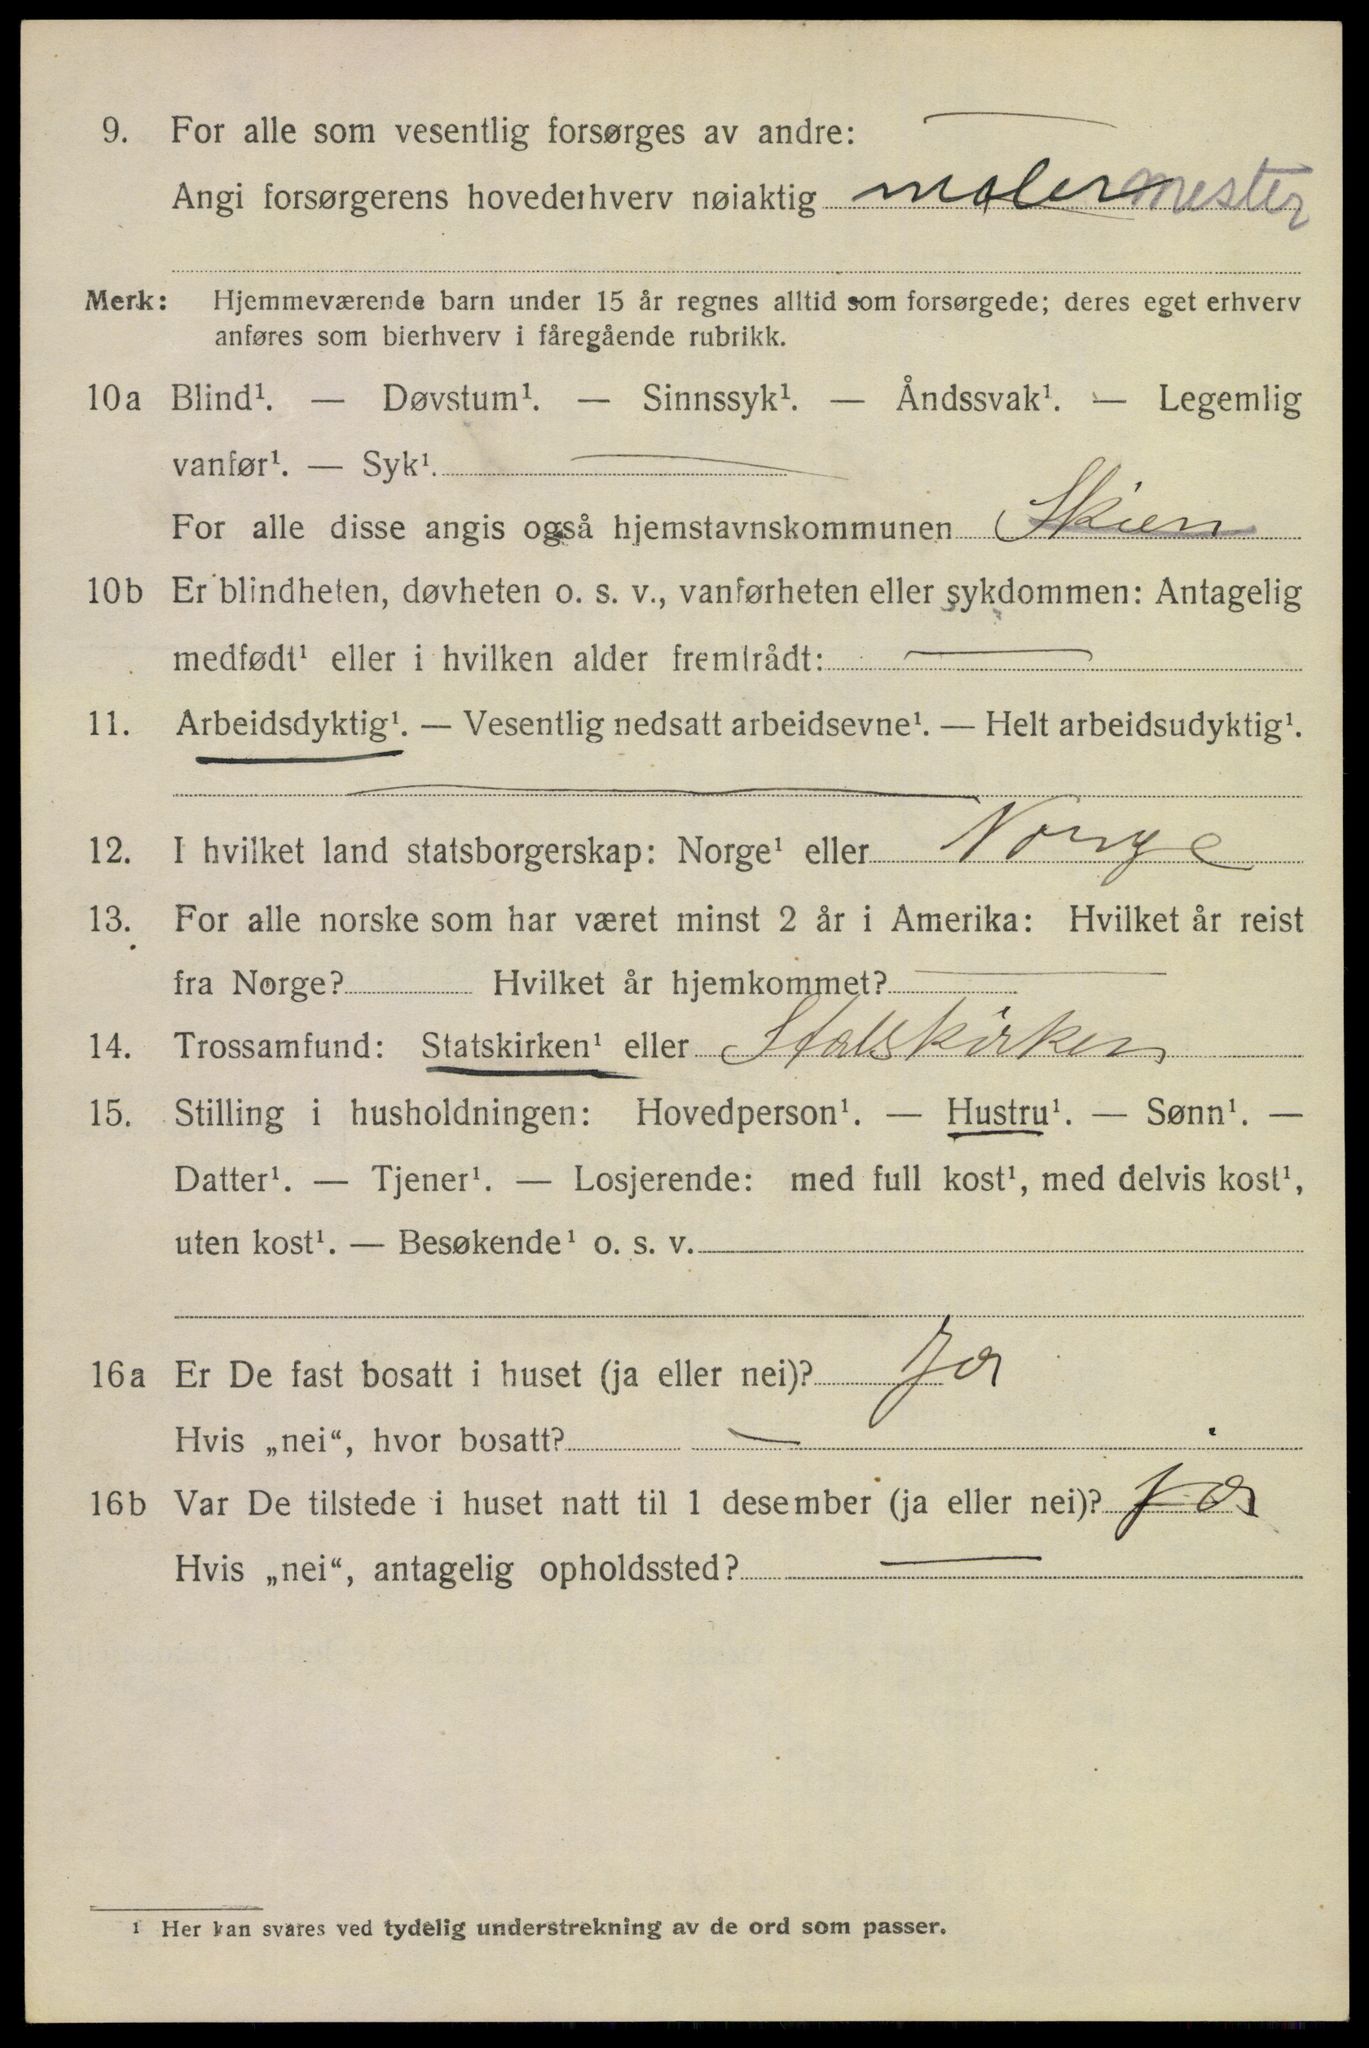 9. For alle som vesentlig forsørges av andre:
Angi forsørgerens hovederhverv nøiaktig malermester
Merk: Hjemmeværende barn under 15 år regnes alltid som forsørgede; deres eget erhverv
anføres som bierhverv i fåregående rubrikk.
10a Blind¹. — Døvstum¹. — Sinnssyk¹. — Åndssvak¹. — Legemlig
vanfør¹. — Syk¹.
For alle disse angis også hjemstavnskommunen Skien
10b Er blindheten, døvheten o. s. v., vanførheten eller sykdommen: Antagelig
medfødt¹ eller i hvilken alder fremtrådt:
11. Arbeidsdyktig¹. — Vesentlig nedsatt arbeidsevne¹. — Helt arbeidsudyktig¹.
12. I hvilket land statsborgerskap: Norge¹ eller Norge
13. For alle norske som har været minst 2 år i Amerika: Hvilket år reist
fra Norge? Hvilket år hjemkommet?
14. Trossamfund: Statskirken¹ eller Statskirken
15. Stilling i husholdningen: Hovedperson¹. — Hustru¹. — Sønn¹. —
Datter¹. — Tjener¹. — Losjerende: med full kost¹, med delvis kost¹,
uten kost¹. — Besøkende¹ o. s. v.
16a Er De fast bosatt i huset (ja eller nei)? ja
Hvis „nei“, hvor bosatt?
16b Var De tilstede i huset natt til 1 desember (ja eller nei)? ja
Hvis „nei“, antagelig opholdssted?
1 Her kan svares ved tydelig understrekning av de ord som passer.